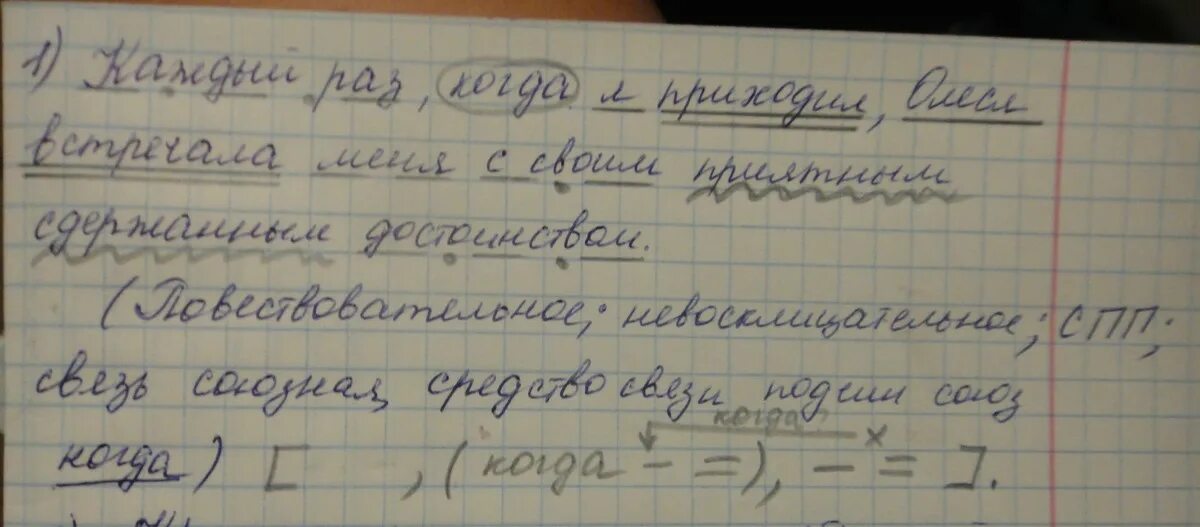 1) Каждый раз, когда я приходил, Олеся
встречала меня с своим приятным
сдержанным достоинством.
(Повествовательное; невосклицательное; СПП;
связь союзная, средство связи подчин союз
когда
когда) [ , (когда – =), – × = ].